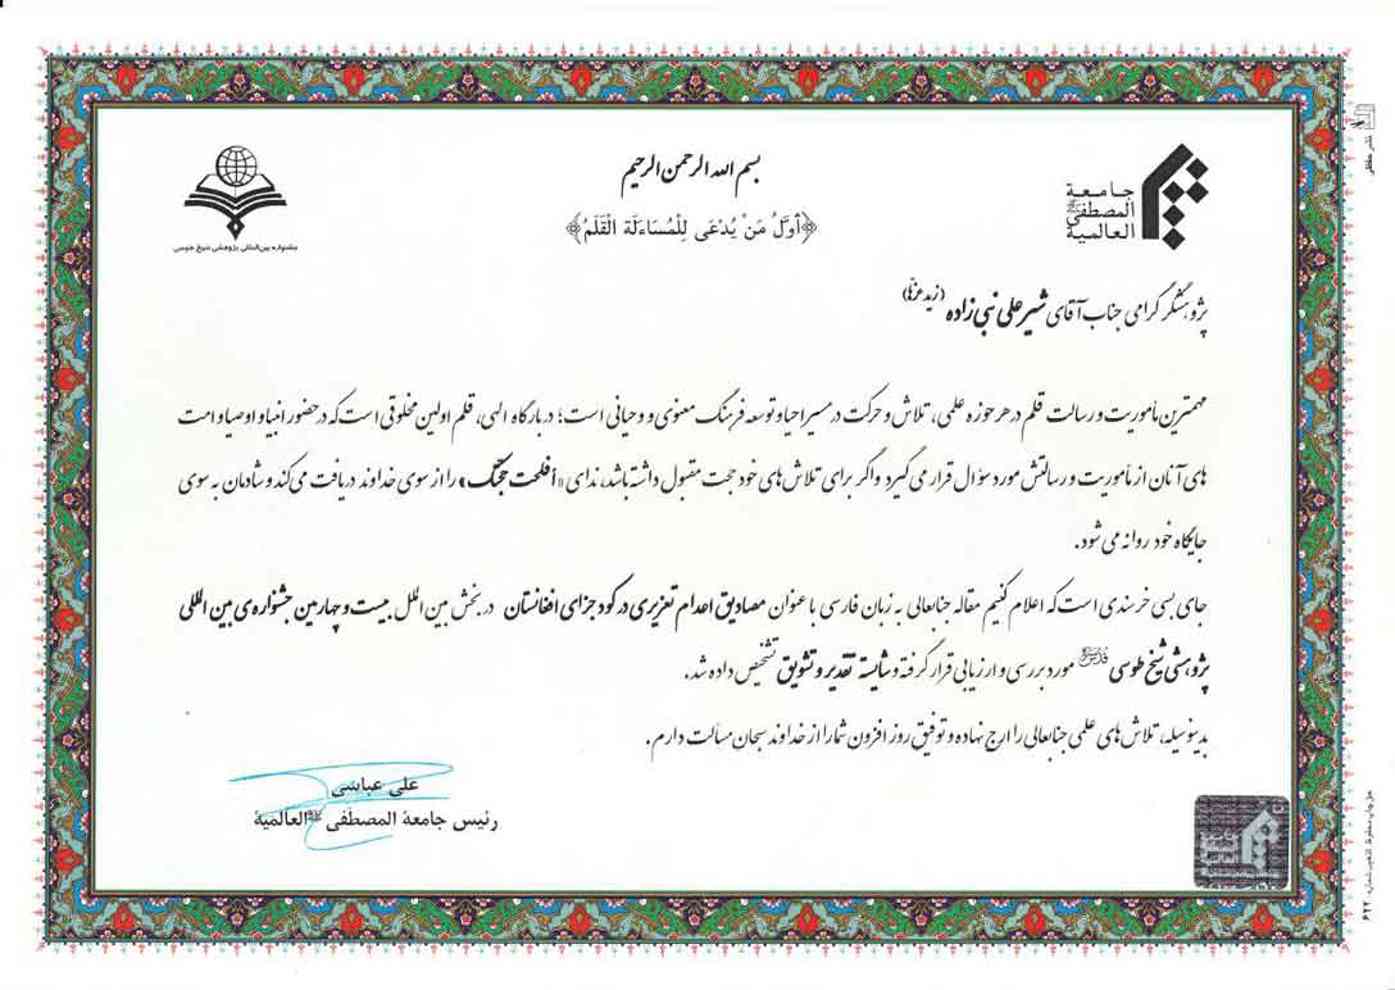 بسم الله الرحمن الرحیم
﴿أَوَّلُ مَنْ يُدْعَى لِلْمُسَاءَلَة الْقَلَمُ﴾
جامعة
المصطفی
العالمیة
جشنواره بین‌المللی پژوهشی شیخ طوسی
پژوهشگر گرامی جناب آقای شیرعلی نبی زاده (زید عزه)
مهمترین مأموریت و رسالت قلم در هر حوزه علمی، تلاش و حرکت در مسیر احیا و توسعه فرهنگ معنوی و وحیانی است؛ در بارگاه الهی، قلم اولین مخلوقی است که در حضور انبیا و اوصیا و امت
های آنان از مأموریت و رسالتش مورد سؤال قرار می گیرد و اگر برای تلاش های خود حجت مقبول داشته باشد، ندای «أفلحت حجتک» را از سوی خداوند دریافت می کند و شادمان به سوی
جایگاه خود روانه می شود.
جای بسی خرسندی است که اعلام کنیم مقاله جنابعالی به زبان فارسی با عنوان مصادیق اعدام تعزیری در کود جزای افغانستان در بخش بین الملل بیست و چهارمین جشنواره‌ی بین المللی
پژوهشی شیخ طوسی مورد بررسی و ارزیابی قرار گرفته و شایسته تقدیر و تشویق تشخیص داده شد.
بدینوسیله، تلاش های علمی جنابعالی را ارج نهاده و توفیق روز افزون شما را از خداوند سبحان مسألت دارم.
علی عباسی
رئیس جامعة المصطفی العالمیة